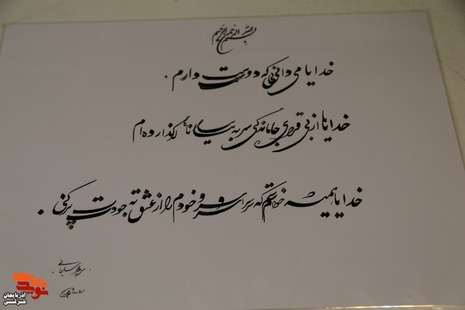 بسم الله الرحمن الرحیم
خدایا می دانی که دوستت دارم .
خدایا از بی قراری جاماندگی سر به بیابان ها گذارده ام
خدایا همیشه خواستم که سراسر وجودم را از عشق به خودت پر کنی .
آذربایجان
شرقی